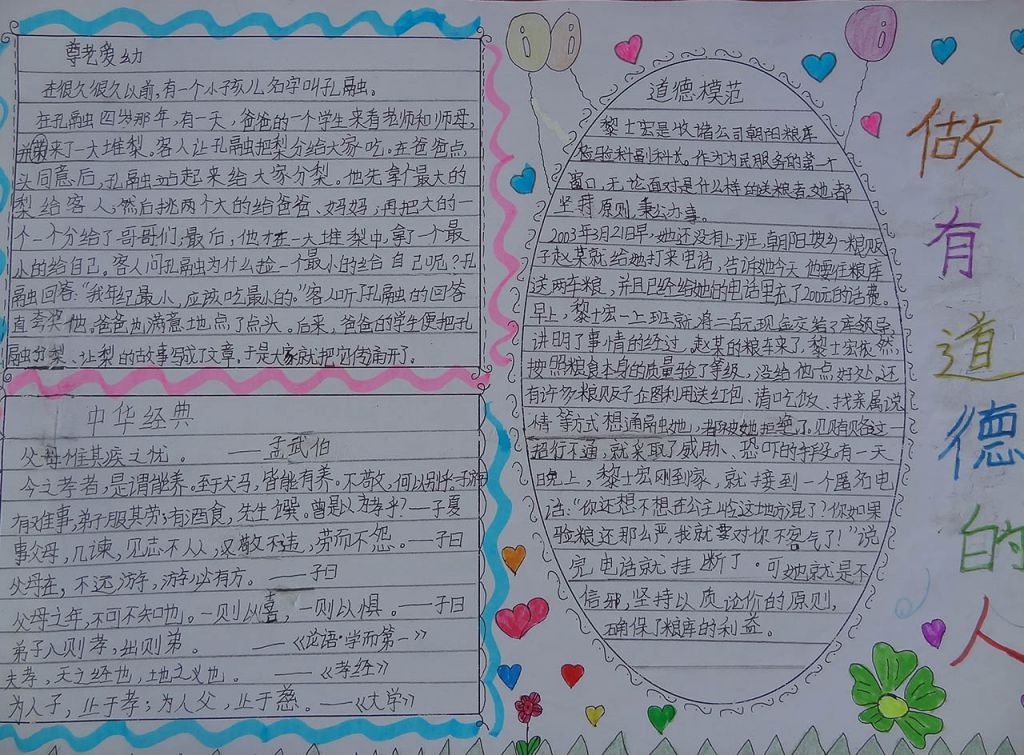 尊老爱幼
在很久很久以前,有一个小孩儿名字叫孔融。
在孔融四岁那年,有一天,爸爸的一个学生来看老师和师母,
并带来了一大堆梨。客人让孔融把梨分给大家吃。在爸爸点
头同意后,孔融站起来给大家分梨。他先拿个最大的
梨给客人;然后挑两个大的给爸爸、妈妈;再把大的一
个一个分给了哥哥们;最后,他才在一大堆梨中,拿了一个最
小的给自己。客人问孔融为什么捡一个最小的给自己呢?孔
融回答:“我年纪最小,应该吃最小的。”客人听了孔融的回答
直夸奖他。爸爸也满意地点了点头。后来,爸爸的学生便把孔
融分梨、让梨的故事写成了文章,于是大家就把它传诵开了。
中华经典
父母惟其疾之忧。——孟武伯
今之孝者,是谓能养。至于犬马,皆能有养。不敬,何以别乎子游
有难事,弟子服其劳;有酒食,先生馔。曾是以为孝乎?—子夏
事父母,几谏,见志不从,又敬不违,劳而不怨。——子曰
父母在,不远游,游必有方。——子曰
父母之年,不可不知也。一则以喜,一则以惧。——子曰
弟子入则孝,出则弟。——《论语·学而第一》
夫孝,天之经也,地之义也。——《孝经》
为人子,止于孝;为人父,止于慈。——《大学》
道德模范
黎士宏是收储公司朝阳粮库
检验科副科长。作为为民服务的第一
窗口,无论面对是什么样的送粮者,她都
坚持原则,秉公办事。
2003年3月21日早,她还没有上班,朝阳坡乡一粮贩
子赵某就给她打来电话,告诉她今天他要往粮库
送两车粮,并且已经给她的电话里充了200元的话费。
早上,黎士宏一上班就将二百元现金交给了库领导,
讲明了事情的经过。赵某的粮车来了,黎士宏依然
按照粮食本身的质量验了等级,没给他点好处。还
有许多粮贩子企图利用送红包、请吃饭、找亲属说
情等方式想通融她,都被她拒绝了。见贿赂这一
招行不通,就采取了威胁、恐吓的手段。有一天
晚上,黎士宏刚到家,就接到一个匿名电
话:“你还想不想在公主岭这地方混了?你如果
验粮还那么严,我就要对你不客气了!”说
完电话就挂断了。可她就是不
信邪,坚持以质论价的原则,
确保了粮库的利益。
做有道德的人